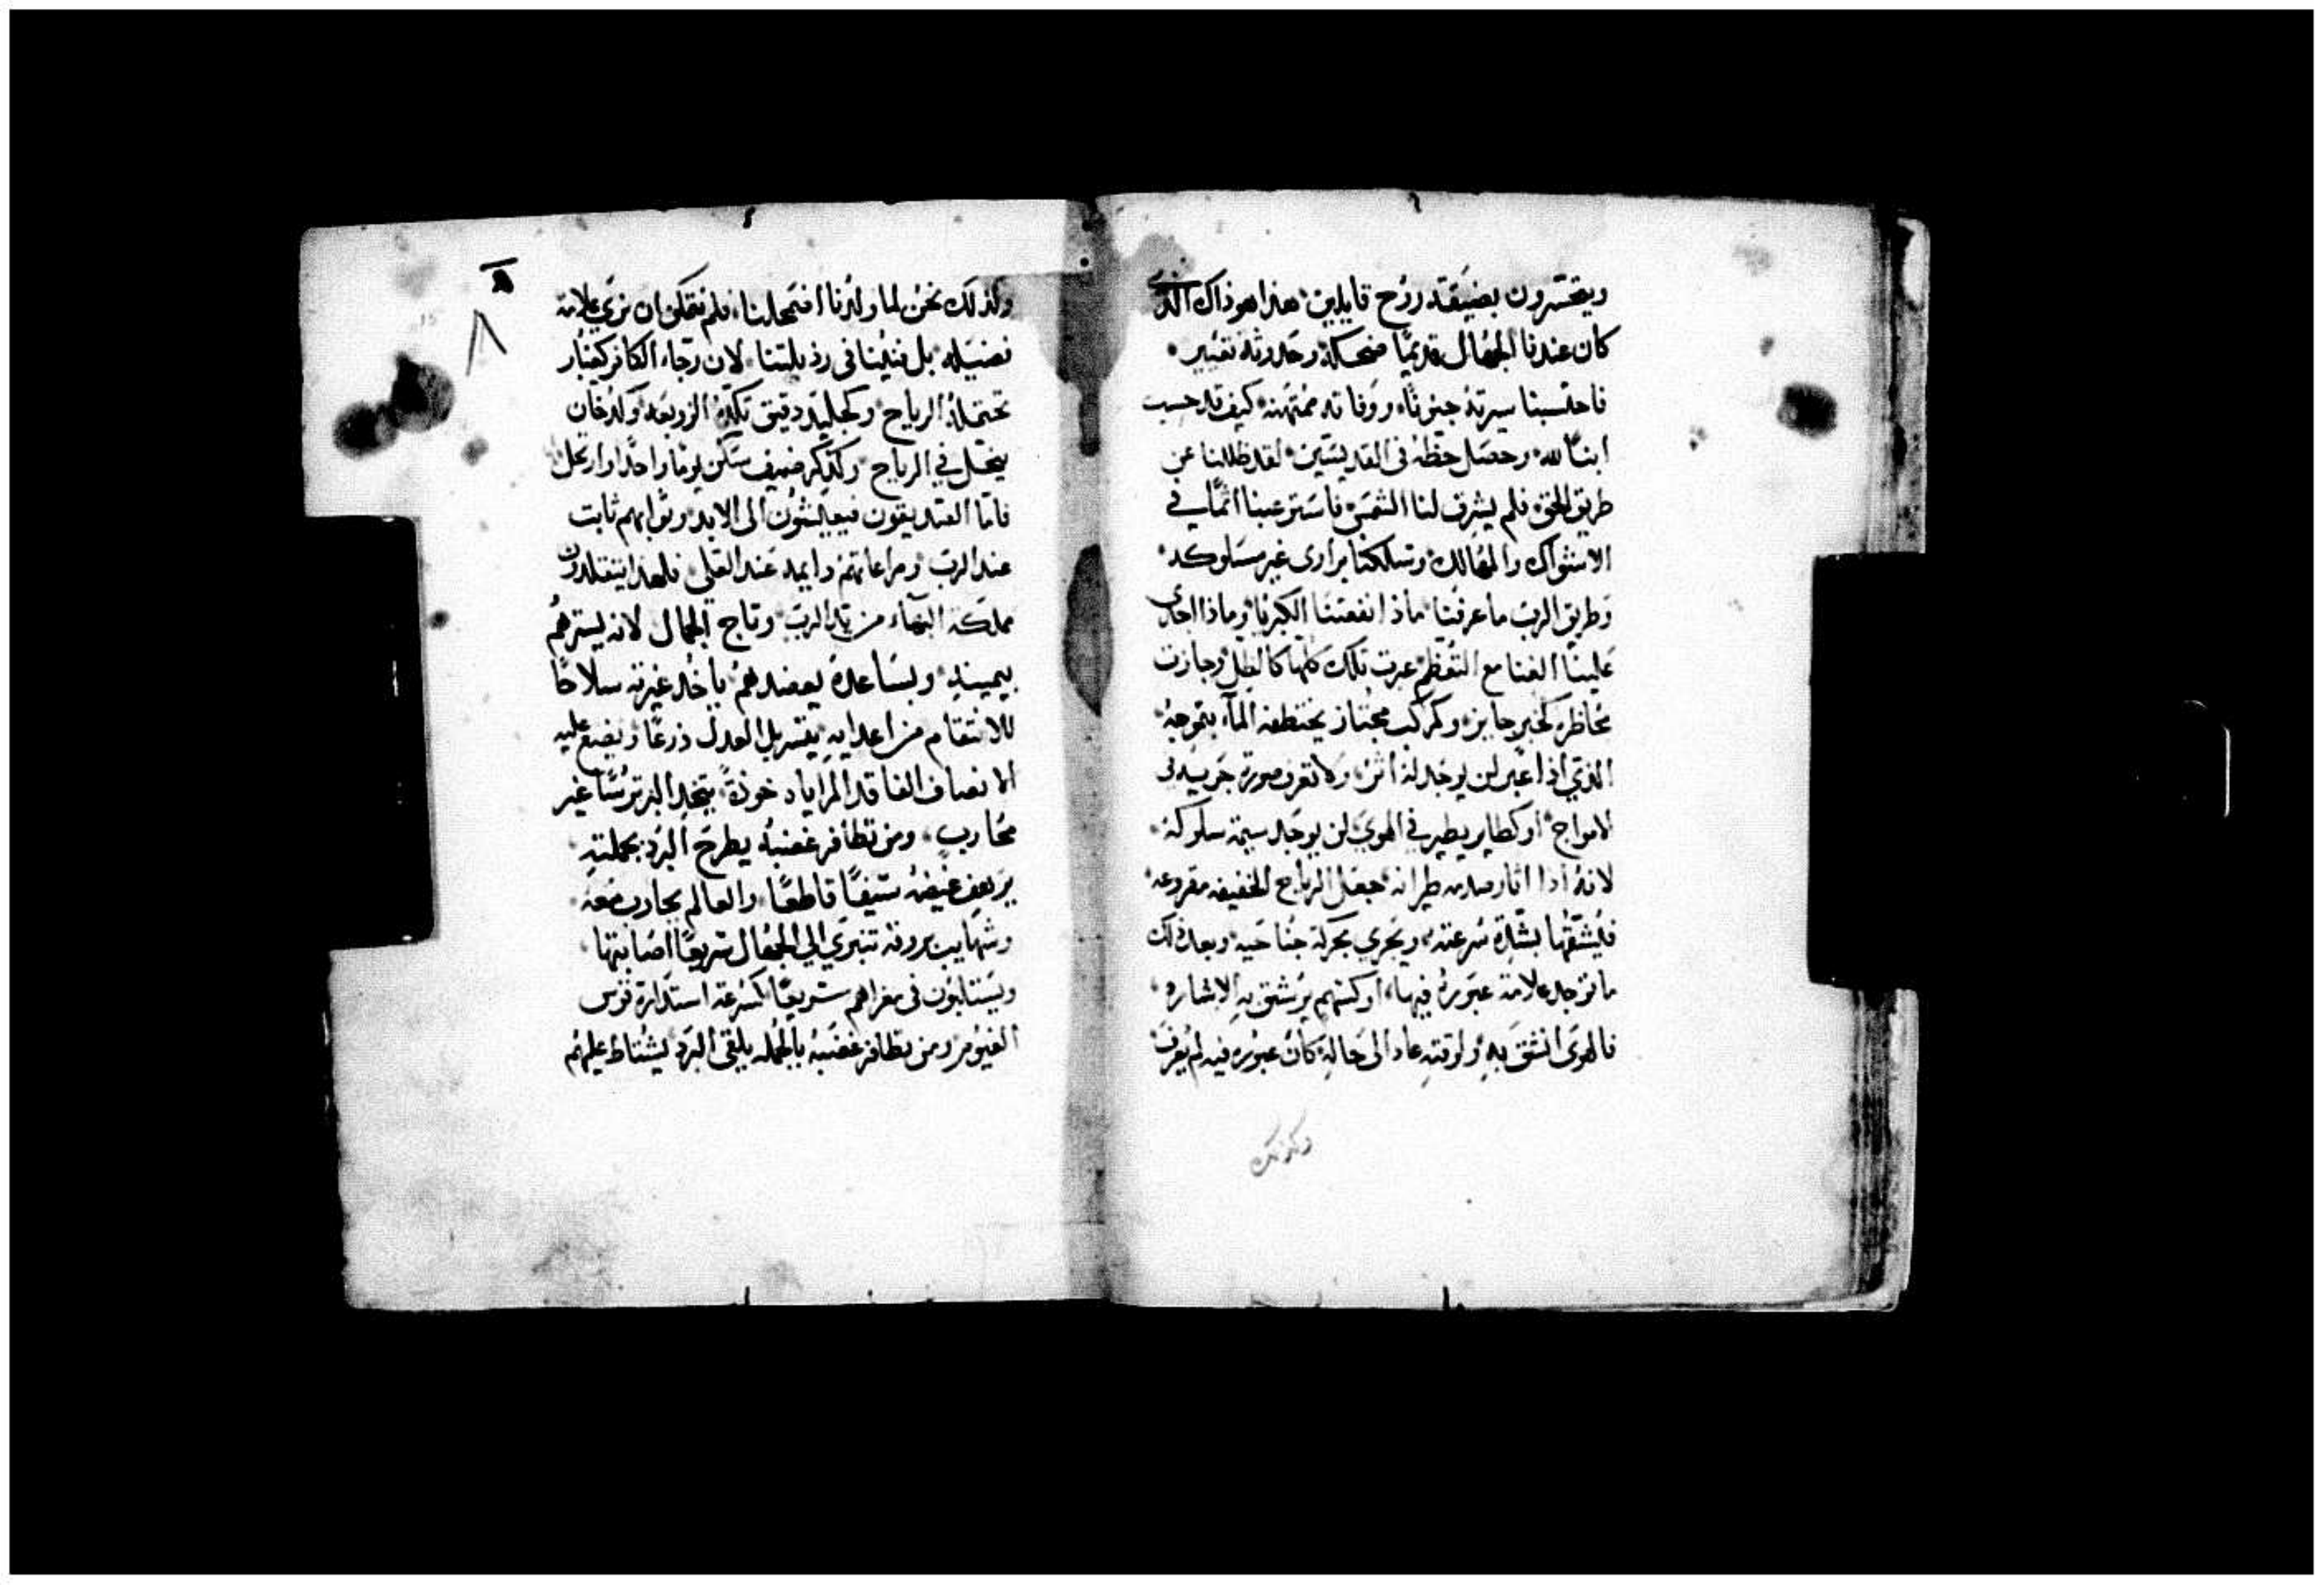 ويتحسرون بضيقة روح قايلين هذا هو ذاك الذى
كان عندنا الجهال قديمًا ضحكة وحدوثة تعيير
فاحتسبنا سيرته جنونًا ووفاته ممتهنة كيف قد حسب
ابنًا لله وحصل حظه فى القديسين لقد ظللنا عن
طريق الحق فلم يشرق لنا الشمس فاسترعبنا اثمًا في
الاشواك والمهالك وتسلكنا برارى غير مسلوكه
وطريق الرب ما عرفنا ماذا انفعتنا الكبريا وماذا اجدى
علينا الغنا مع التعظم عبرت تلك كلها كالظل وجازت
كخبر جايز وكمركب مجتاز يختطفه المآء بتموجه
الذي اذا عبر لن يوجد له اثر ولا تعرف صورة جريه فى
الامواج او كطاير يطير في الهوى لن يوجد سمة سلوكه
لانه اذا اثار صدمه طيرانه جعل الرياح الخفيفه مقروعه
فيشقها بشدة سرعته ويجري بحركة جناحيه وبعد ذلك
ما توجد علامة عبوره فيها او كسهم يرشق به الاشاره
فالهوى انشق به ولوقته عاد الى حاله كان عبوره فيه لم يعرف
وكذلك
ه
٨
وكذلك نحن لما ولدنا اضمحلينا فلم نتمكن ان نرى علامة
فضيله بل فنينا فى رذيلتنا لان رجاء الكافر كغبار
تحتمله الرياح وكجليد دقيق تكده الزوبعه وكدخان
ينحل في الرياح وكذكر ضيف سكن يومًا واحدًا وارتحل
فاما الصديقون فيعيشون الى الابد وثوابهم ثابت
عند الرب ومراعاتهم دايمه عند العلى فلهذا يتقلدون
مملكة البهاء من يد الرب وتاج الجمال لانه يسترهم
بيمينه وبساعده يعضدهم ياخذ غيرته سلاحًا
للانتقام من اعدايه يتسربل العدل درعًا ويضع عليه
الانصاف الفاقد المراياه خوذة يتخذ البر ترسًا غير
محارب ومن تظافر غضبه يطرح البرد بجملته
يرهف غيضه سيفًا قاطعًا والعالم يحارب معه
وشهايب بروقه تنبري الي الجهال سريعًا اصابتها
ويستلبون فى مغراهم سريعًا كسرعة استدارة قوس
الغيوم ومن تظافر غضبه بالجمله يلقى البرد يشتاط عليهم